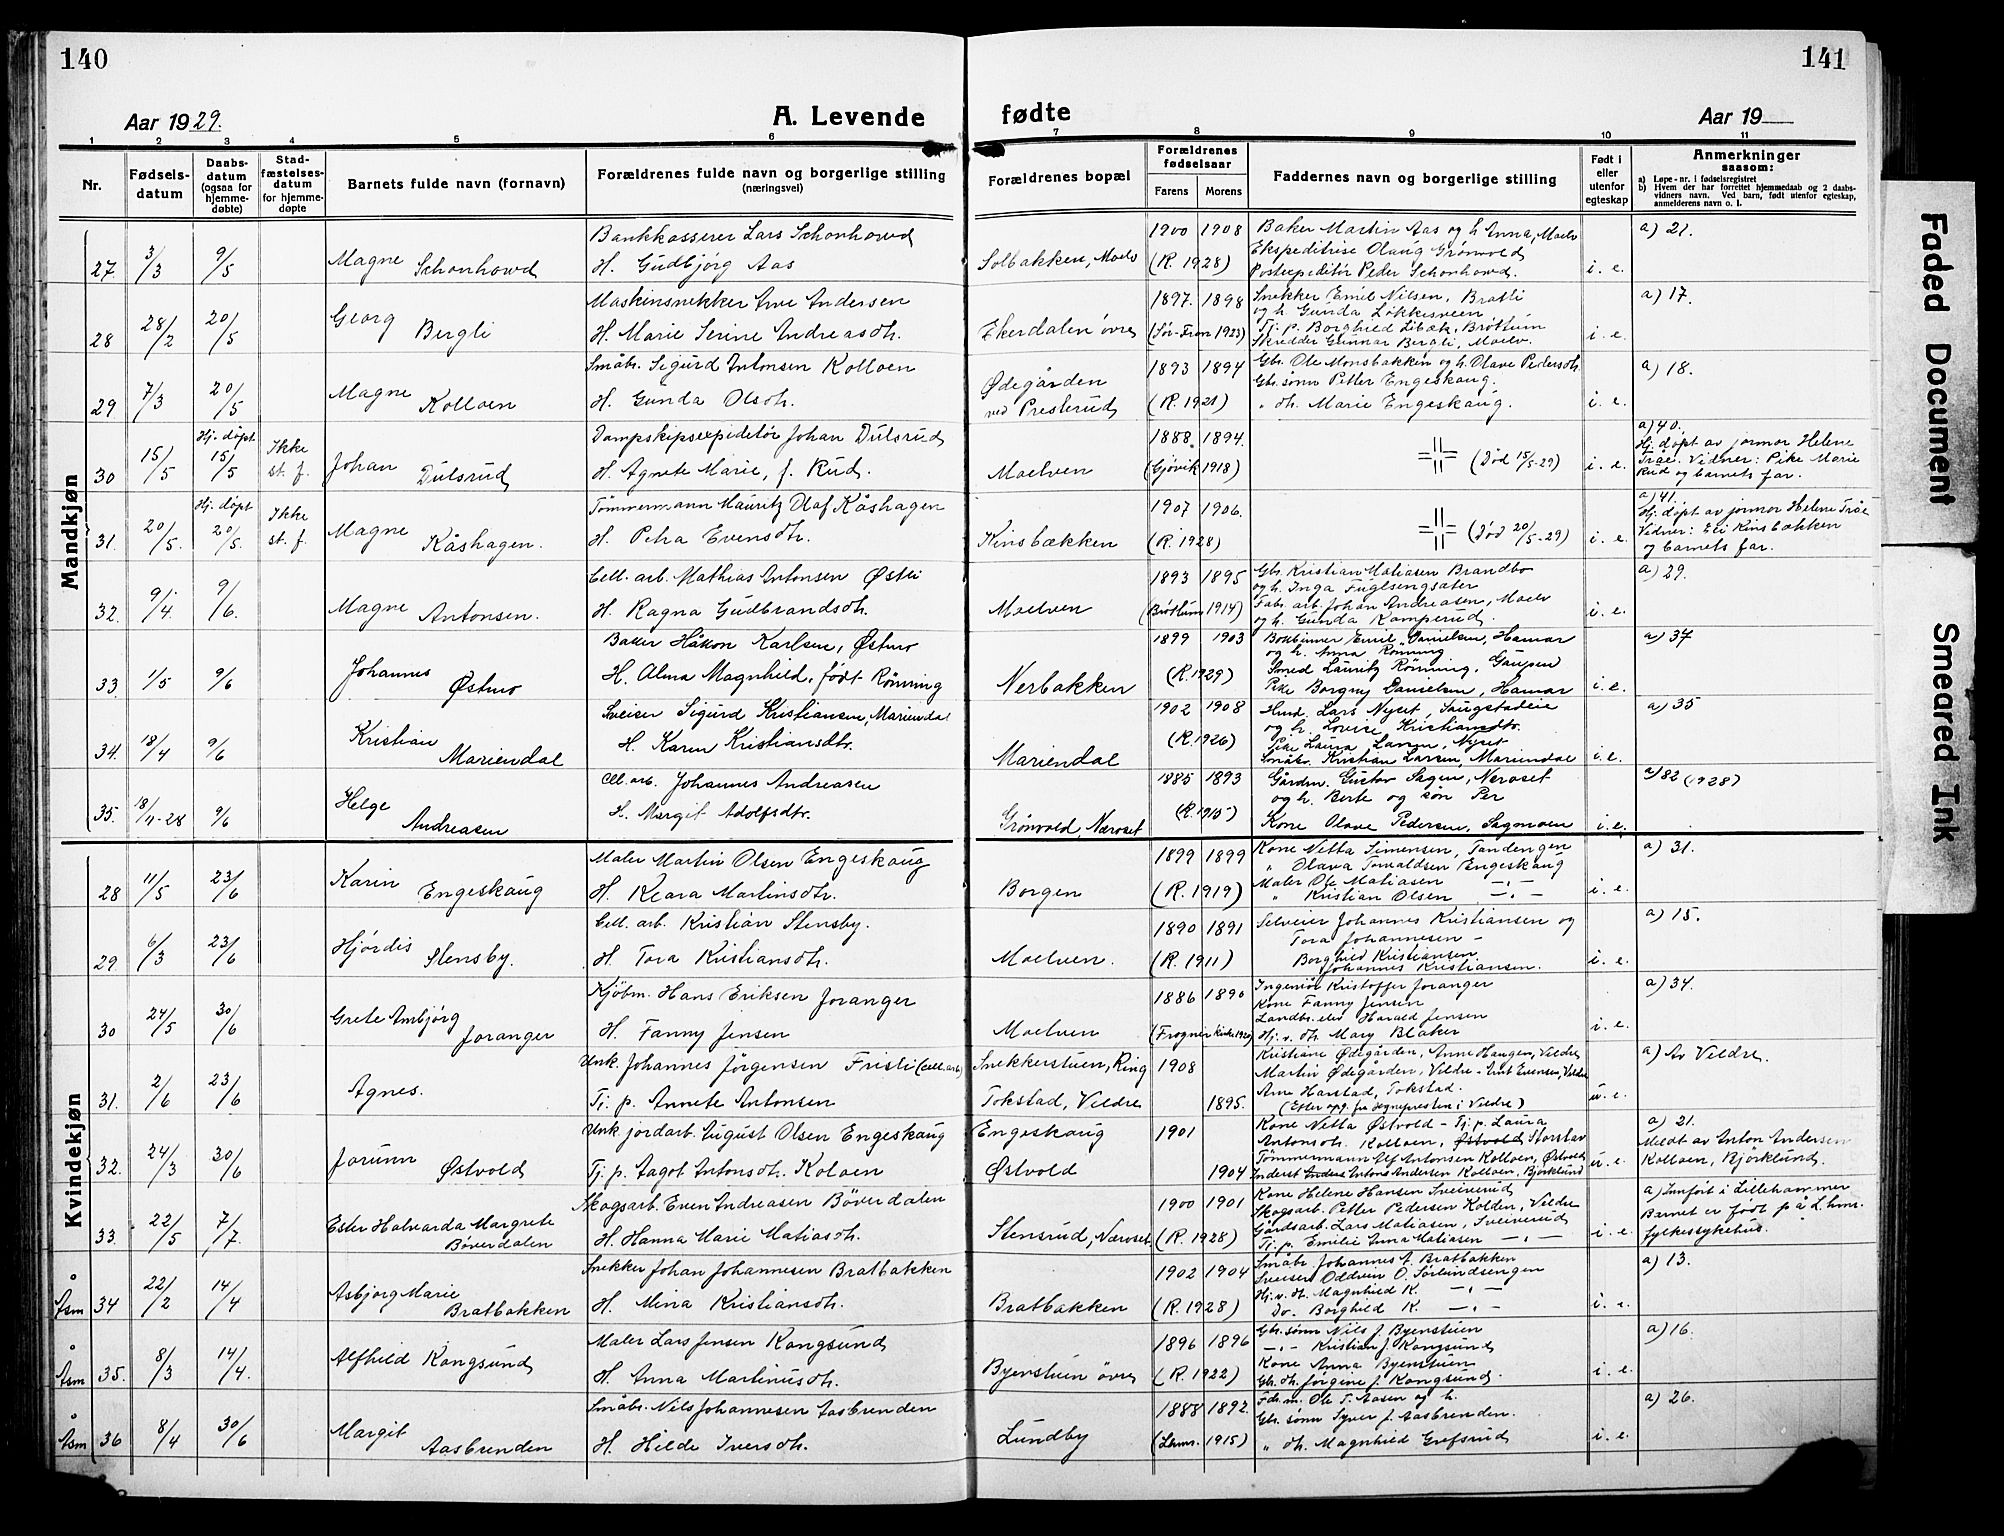 140
141
Aar 1929.
A. Levende
fødte
Aar 19
1 2 3 4 5 6 7 8 9 10 11
Nr.
Fødsels-
datum
Daabs-
datum
(ogsaa for
hjemme-
døbte)
Stad-
fæstelses-
datum
for hjemme-
døpte
Barnets fulde navn (fornavn)
Forældrenes fulde navn og borgerlige stilling
(næringsvei)
Forældrenes bopæl
Forældrenes
fødselsaar
Farens Morens
Faddernes navn og borgerlige stilling
Født i
eller
utenfor
egteskap
Anmerkninger
saasom:
a) Løpe-nr. i fødselsregistret
b) Hvem der har forrettet hjemmedaab og 2 daabs-
vidners navn. Ved barn, født utenfor egteskap,
anmelderens navn o. l.
Mandkjøn
27. 3/3 9/5 Magne Schonhowd
Bankkasserer Lars Schonhowd
H. Gudbjørg Aas
Solbakken, Moelv
1900 1908
(R. 1928)
Baker Martin Aas og h. Anna, Moelv
Ekspeditrise Olaug Grønvold
Postexpeditør Peder Schonhowd.
i. e.
a) 21.
28 28/2 20/5 Georg Bergli
Maskinsnekker Arve Andersen
H. Marie Serine Andreasdtr.
Ekerdalen øvre
1897. 1898
(Sør-Fron 1923)
Snekker Emil Nilsen, Bratli
og h. Gunda Løkkesveen
Tj. p. Borghild Libæk, Brøttum
Skredder Gunnar Bergli, Moelv.
i. e.
a) 17.
29. 7/3 20/5 Magne Kolloen
Småbr. Sigurd Antonsen Kolloen
H. Gunda Olsdtr.
Ødegården
ved Presterud
1893 1894
(R. 1921)
Gbr. Ole Monsbakken og h. Olave Pedersdtr.
Gbr. sønn Petter Engeskaug.
" dtr. Marie Engeskaug.
i. e.
a) 18.
30 15/5 Hj. døpt 15/5 Ikke st. f. Johan Dulsrud
Dampskipsexpeditør Johan Dulsrud
H. Agnete Marie, f. Rud.
Moelven
1888. 1894.
(Gjøvik 1918)
(Død 15/5-29)
i. e.
a) 40.
Hj. døpt av jormor Helene
Tråe. Vidner: Pike Marie
Rud og barnets far.
31. 20/5. Hj. døpt 20/5. Ikke st. f. Magne Kåshagen.
Tømmermann Mauritz Olaf Kåshagen
H. Petra Evensdtr.
Kinsbækken
1907 1906.
(R. 1928)
(Død 20/5-29)
i. e.
a) 41.
Hj. døpt av jormor Helene Tråe
Vidner: Eli Kinsbækken
og barnets far.
32. 9/4 9/6. Magne Antonsen.
Cell. arb. Mathias Antonsen Østli
H. Ragna Gudbrandsdtr.
Moelven
1893 1895
(Brøttum 1914)
Gbr. Kristian Matiasen Brandbo
og h. Inga Fuglsengsæter
Fabr. arb. Johan Andreasen, Moelv
og h. Gunda Kamperud.
i. e.
a) 29.
33. 1/5 9/6 Johannes Østmo
Baker Håkon Karlsen, Østmo
H. Alma Magnhild, født Rønning
Nerbakken
1899 1903
(R. 1929)
Bokbinner Emil Danielsen, Hamar
og h. Anna Rønning
Smed Lauritz Rønning, Gaupen
Pike Borgny Danielsen, Hamar
i. e.
a) 37
34. 18/4 9/6 Kristian Mariendal
Sveiser Sigurd Kristiansen, Mariendal
H. Karen Kristiansdtr.
Mariendal
1902 1908
(R. 1926)
Husd. Lars Nyset, Saugstadeie
og h. Lovise Kristiansdtr.
Pike Laura Larsen, Nyset
Småbr. Kristian Larsen, Mariendal
i. e.
a) 35
35. 18/11-28 9/6 Helge Andreasen
Cell. arb. Johannes Andreasen
H. Margit Adolfsdtr.
Grønvold, Næroset
1885 1893
(R. 1915)
Gårdm. Gustav Sagen, Næroset
og h. Berte og søn Per
Kone Olave Pedersen, Sagmoen
i. e.
a) 82 (1928)
Kvindekjøn
28 11/5 23/6 Karin Engeskaug
Maler Martin Olsen Engeskaug
H. Klara Martinsdtr.
Borgen
1899 1899
(R. 1919)
Kone Netta Simensen, Tandengen
" Olava Torvaldsen Engeskaug
Maler Ole Matiasen —"—
" Kristian Olsen —"—
i. e.
a) 31.
29. 6/3 23/6 Hjørdis Stensby.
Cell. arb. Kristian Stensby.
H. Tora Kristiansdtr.
Moelven.
1890 1891
(R. 1911)
Selveier Johannes Kristiansen og
Tora Johannesen –
Borghild Kristiansen
Johannes Kristiansen.
i. e.
a) 15.
30 24/5 30/6 Grete Ambjørg Joranger
Kjøbm. Hans Eriksen Joranger
H. Fanny Jensen
Moelven
1886 1890
(Frogner kirke 1920)
Ingeniør Kristoffer Joranger
Kone Fanny Jensen
Landbr. elev Harald Jensen
Hj. v. dtr. Mary Blaker
i. e.
a) 34.
31. 2/6 23/6 Agnes.
Unk. Johannes Jørgensen Fristi (cell. arb)
Tj. p. Annete Antonsen
Snekkerstuen, Ring
Tokstad, Veldre
1908
1895.
Kristiane Ødegården, Anne Haugen, Veldre
Martin Ødegården, Veldre – Amt Evensen, Veldre
Arne Harstad, Tokstad.
(Etter opg. fra sognepresten i Veldre)
u. e.
a) Av Veldre.
32. 24/3 30/6 Jorunn Østvold
Unk. jordarb. August Olsen Engeskaug
Tj. p. Aagot Antonsdtr. Koloen
Engeskaug
Østvold
1901
1904
Kone Netta Østvold – Tj. p. Laura
Antonsdtr. Kolloen, Østvold Storstav
Tømmermann Alf Antonsen Kolloen, Østvold
Inderst Anton Andersen Kolloen, Bjørklund
u. e.
a) 21.
Meldt av Anton Andersen
Kolloen, Bjørklund.
33. 22/5 7/7 Ester Halvarda Margrete
Böverdalen
Skogsarb. Even Andreasen Böverdalen
H. Hanna Marie Matiasdtr.
Stensrud, Næroset
1900 1901
(R. 1928)
Kone Helene Hansen Sveiverud
Skogsarb. Petter Pedersen Kolden, Veldre
Gårdsarb. Lars Matiasen, Sveiverud
Tj. p. Emilie Anna Matiasen —"—
i. e.
a) Innført i Lillehammer
Barnet er født på L.hmr.
fylkessykehus.
Åsm 34 22/2 14/4 Asbjørg Marie
Bratbakken
Snekker Johan Johannesen Bratbakken
H. Mina Kristiansdtr.
Bratbakken
1902 1904
(R. 1928)
Småbr. Johannes A. Bratbakken
Sveiser Oddvin O. Sørlundsengen
Hj. v. dtr. Magnhild K. —"—
Do. Borghild K. —"—
i. e.
a) 13.
Åsm 35. 8/3 14/4. Alfhild Kongsund
Maler Lars Jensen Kongsund
H. Anna Martinusdtr.
Byenstuen øvre
1896 1896
(R. 1922)
Gbr. sønn Nils J. Byenstuen
—"— Kristian J. Kongsund
Kone Anna Byenstuen
Gbr. dtr. Jørgine J. Kongsund.
i. e.
a) 16.
Åsm 36 8/4 30/6 Margit Aasbrenden
Småbr. Nils Johannesen Aasbrenden
H. Hilde Iversdtr.
Lundby
1888 1892.
(Lhmr. 1915)
Fdr. m. Ole T. Aasen og h.
Gbr. sønn Syver J. Aasbrenden.
" dtr. Magnhild Grefsrud
i. e.
a) 26.
Faded Document
Smeared Ink